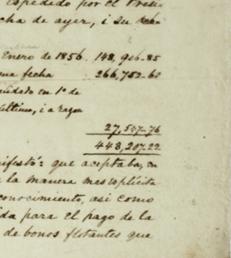 expedido por el Presi-
cha de ayer, i su
Enero de 1856. 148,906-85
ma fecha 266,752-60
en 1º de
ultimo, i a razon
27,537-76
443,207-22
nifestó que aceptaba, en
la manera mas esplícita
conocimiento, asi como
da para el pago de la
de bonos flotantes que